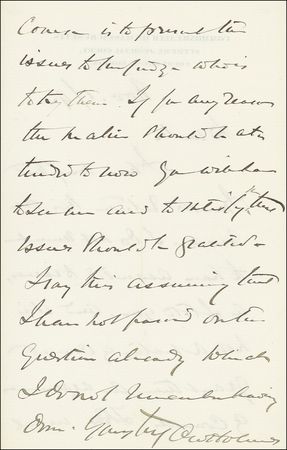 Course is to present the
issues to the judge who is
to try them. If for any reason
the matter should be atten
tended to now you will have
to see me and to satisfy me that
issues should be granted -
I say this assuming that
I have not passed on the
question already which
I do not remember having
done. Yours truly O W Holmes